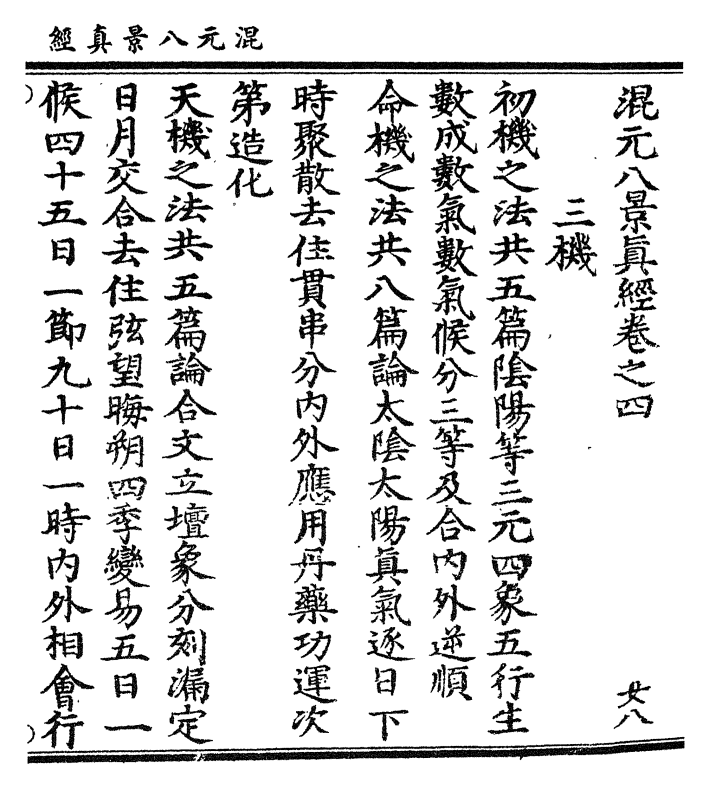 混元八景真經
混元八景眞經卷之四
三機
初機之法共五篇陰陽等三元四象五行生
數成數氣數氣候分三等及合内外逆順
命機之法共八篇論太陰太陽眞氣逐日下
時聚散去住貫串分内外應用丹藥功運次
第造化
天機之法共五篇論合文立壇象分刻漏定
日月交合去住弦望晦朔四季變易五日一
候四十五日一節九十日一時内外相會行
廿八